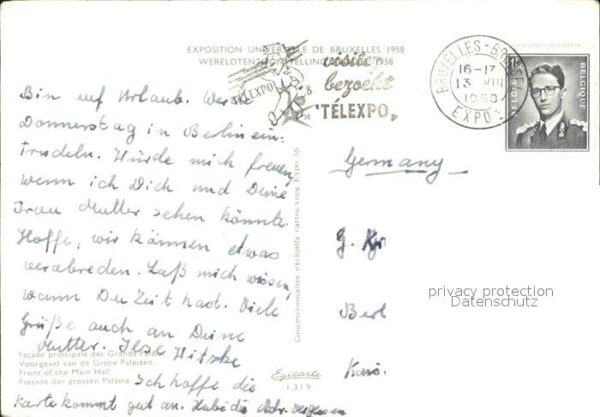 EXPOSITION UNIVERSELLE DE BRUXELLES 1958
WERELDTENTOONSTELLING 1958
TÉLEXPO
58
visitez
bezoekt
"TÉLEXPO"
BRUXELLES - BRUSSEL
16-17
13 VIII
1958
EXPO
BELGIE
BELGIQUE
Bin auf Urlaub. Werde
Donnerstag in Berlin ein-
trudeln. Würde mich freuen,
wenn ich Dich und Deine
Frau Mutter sehen könnte.
Hoffe, wir können etwas
verabreden. Laß mich wissen,
wann Du Zeit hast. Viele
Grüße auch an Deine
Mutter. Ilse Witzke
Ich hoffe die
Karte kommt gut an. Habe die Adr. vergessen
Germany
G. Kr
Berl
Kais.
Concessionnaires exclusifs cartes vues Expo 58
privacy protection
Datenschutz
Façade principale des Grands Palais.
Voorgevel van de Grote Paleizen.
Front of the Main Hall.
Fassade der grossen Paläste
Egicarte
1.319